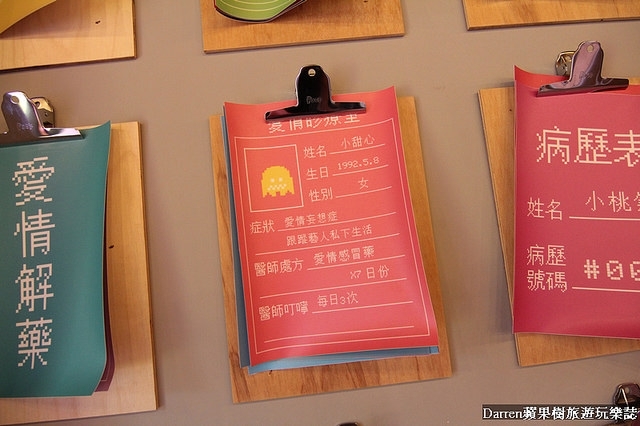 愛情解藥
愛情診療室
姓名 小甜心
生日 1992.5.8
性別 女
症狀 愛情妄想症
跟蹤藝人私下生活
醫師處方 愛情感冒藥
X7日份
醫師叮嚀 每日3次
病歷表
姓名 小桃
病歷
號碼 #00
Darren蘋果樹旅遊玩樂誌